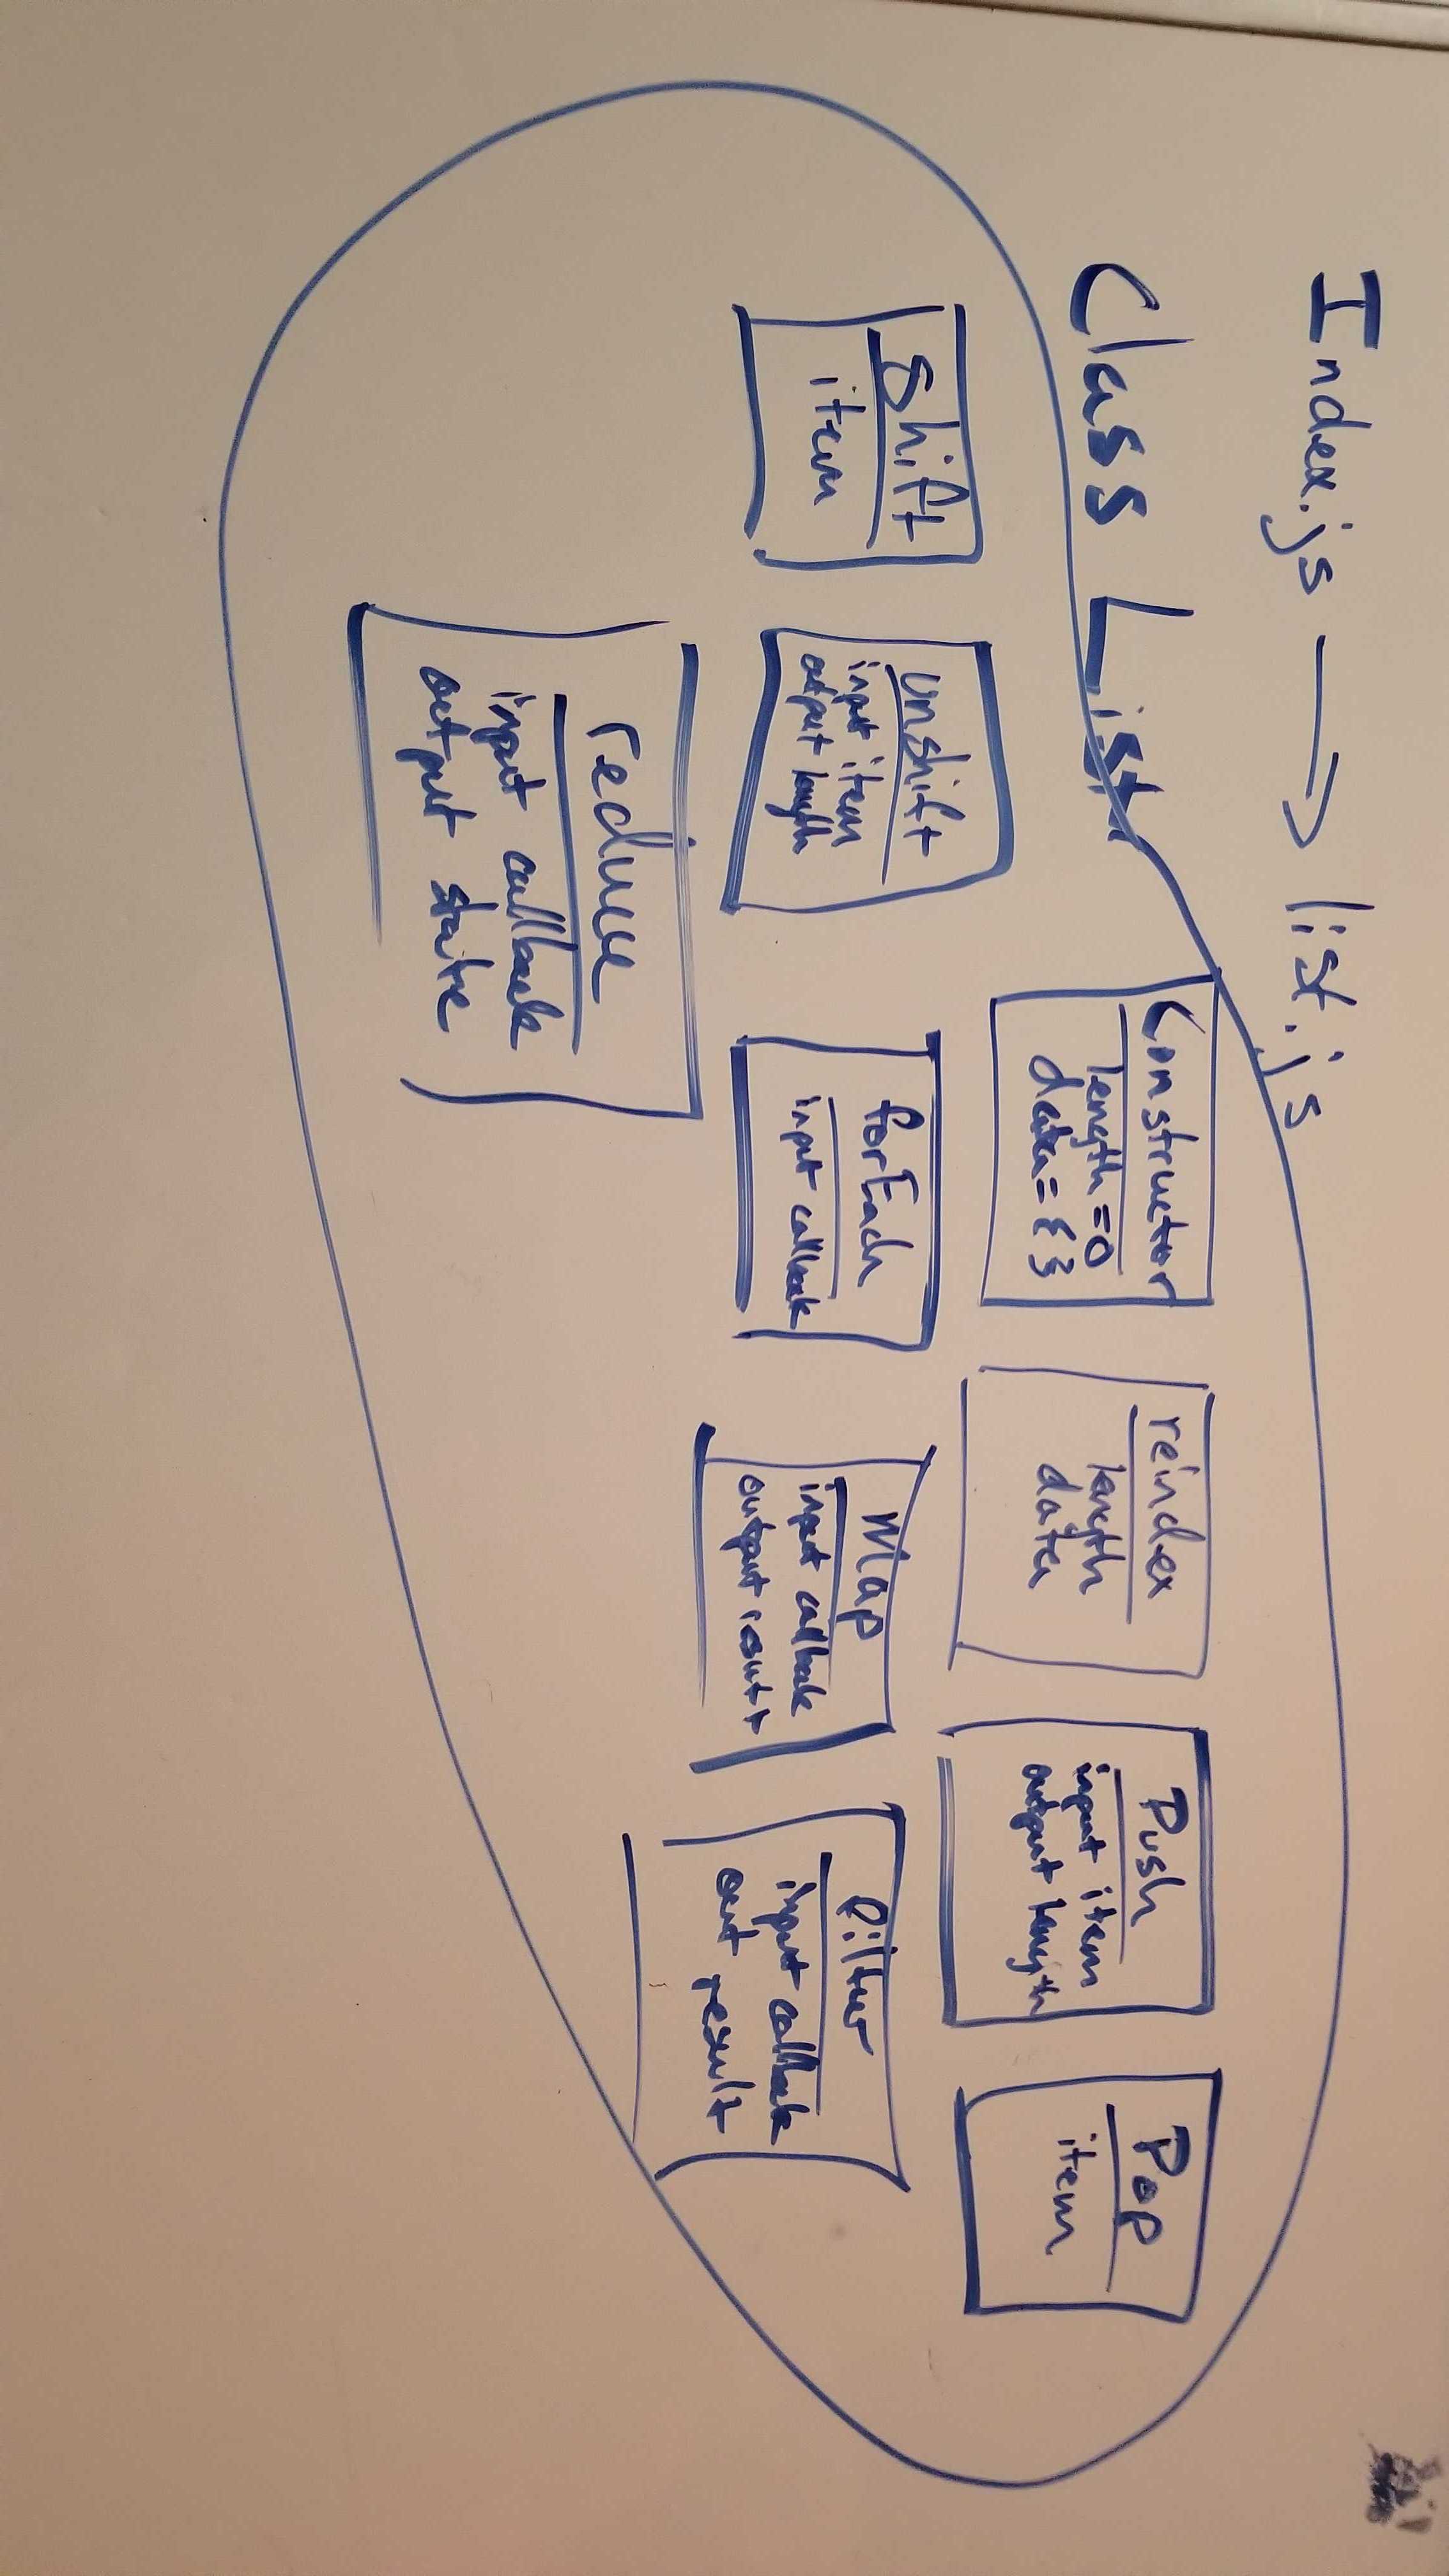 Index.js → list.js
Class List
Constructor
length = 0
data = { }
reindex
length
data
Push
input item
output length
Pop
item
Shift
item
unshift
input item
output length
forEach
input callback
Map
input callback
output result
filter
input callback
out result
reduce
input callback
output state